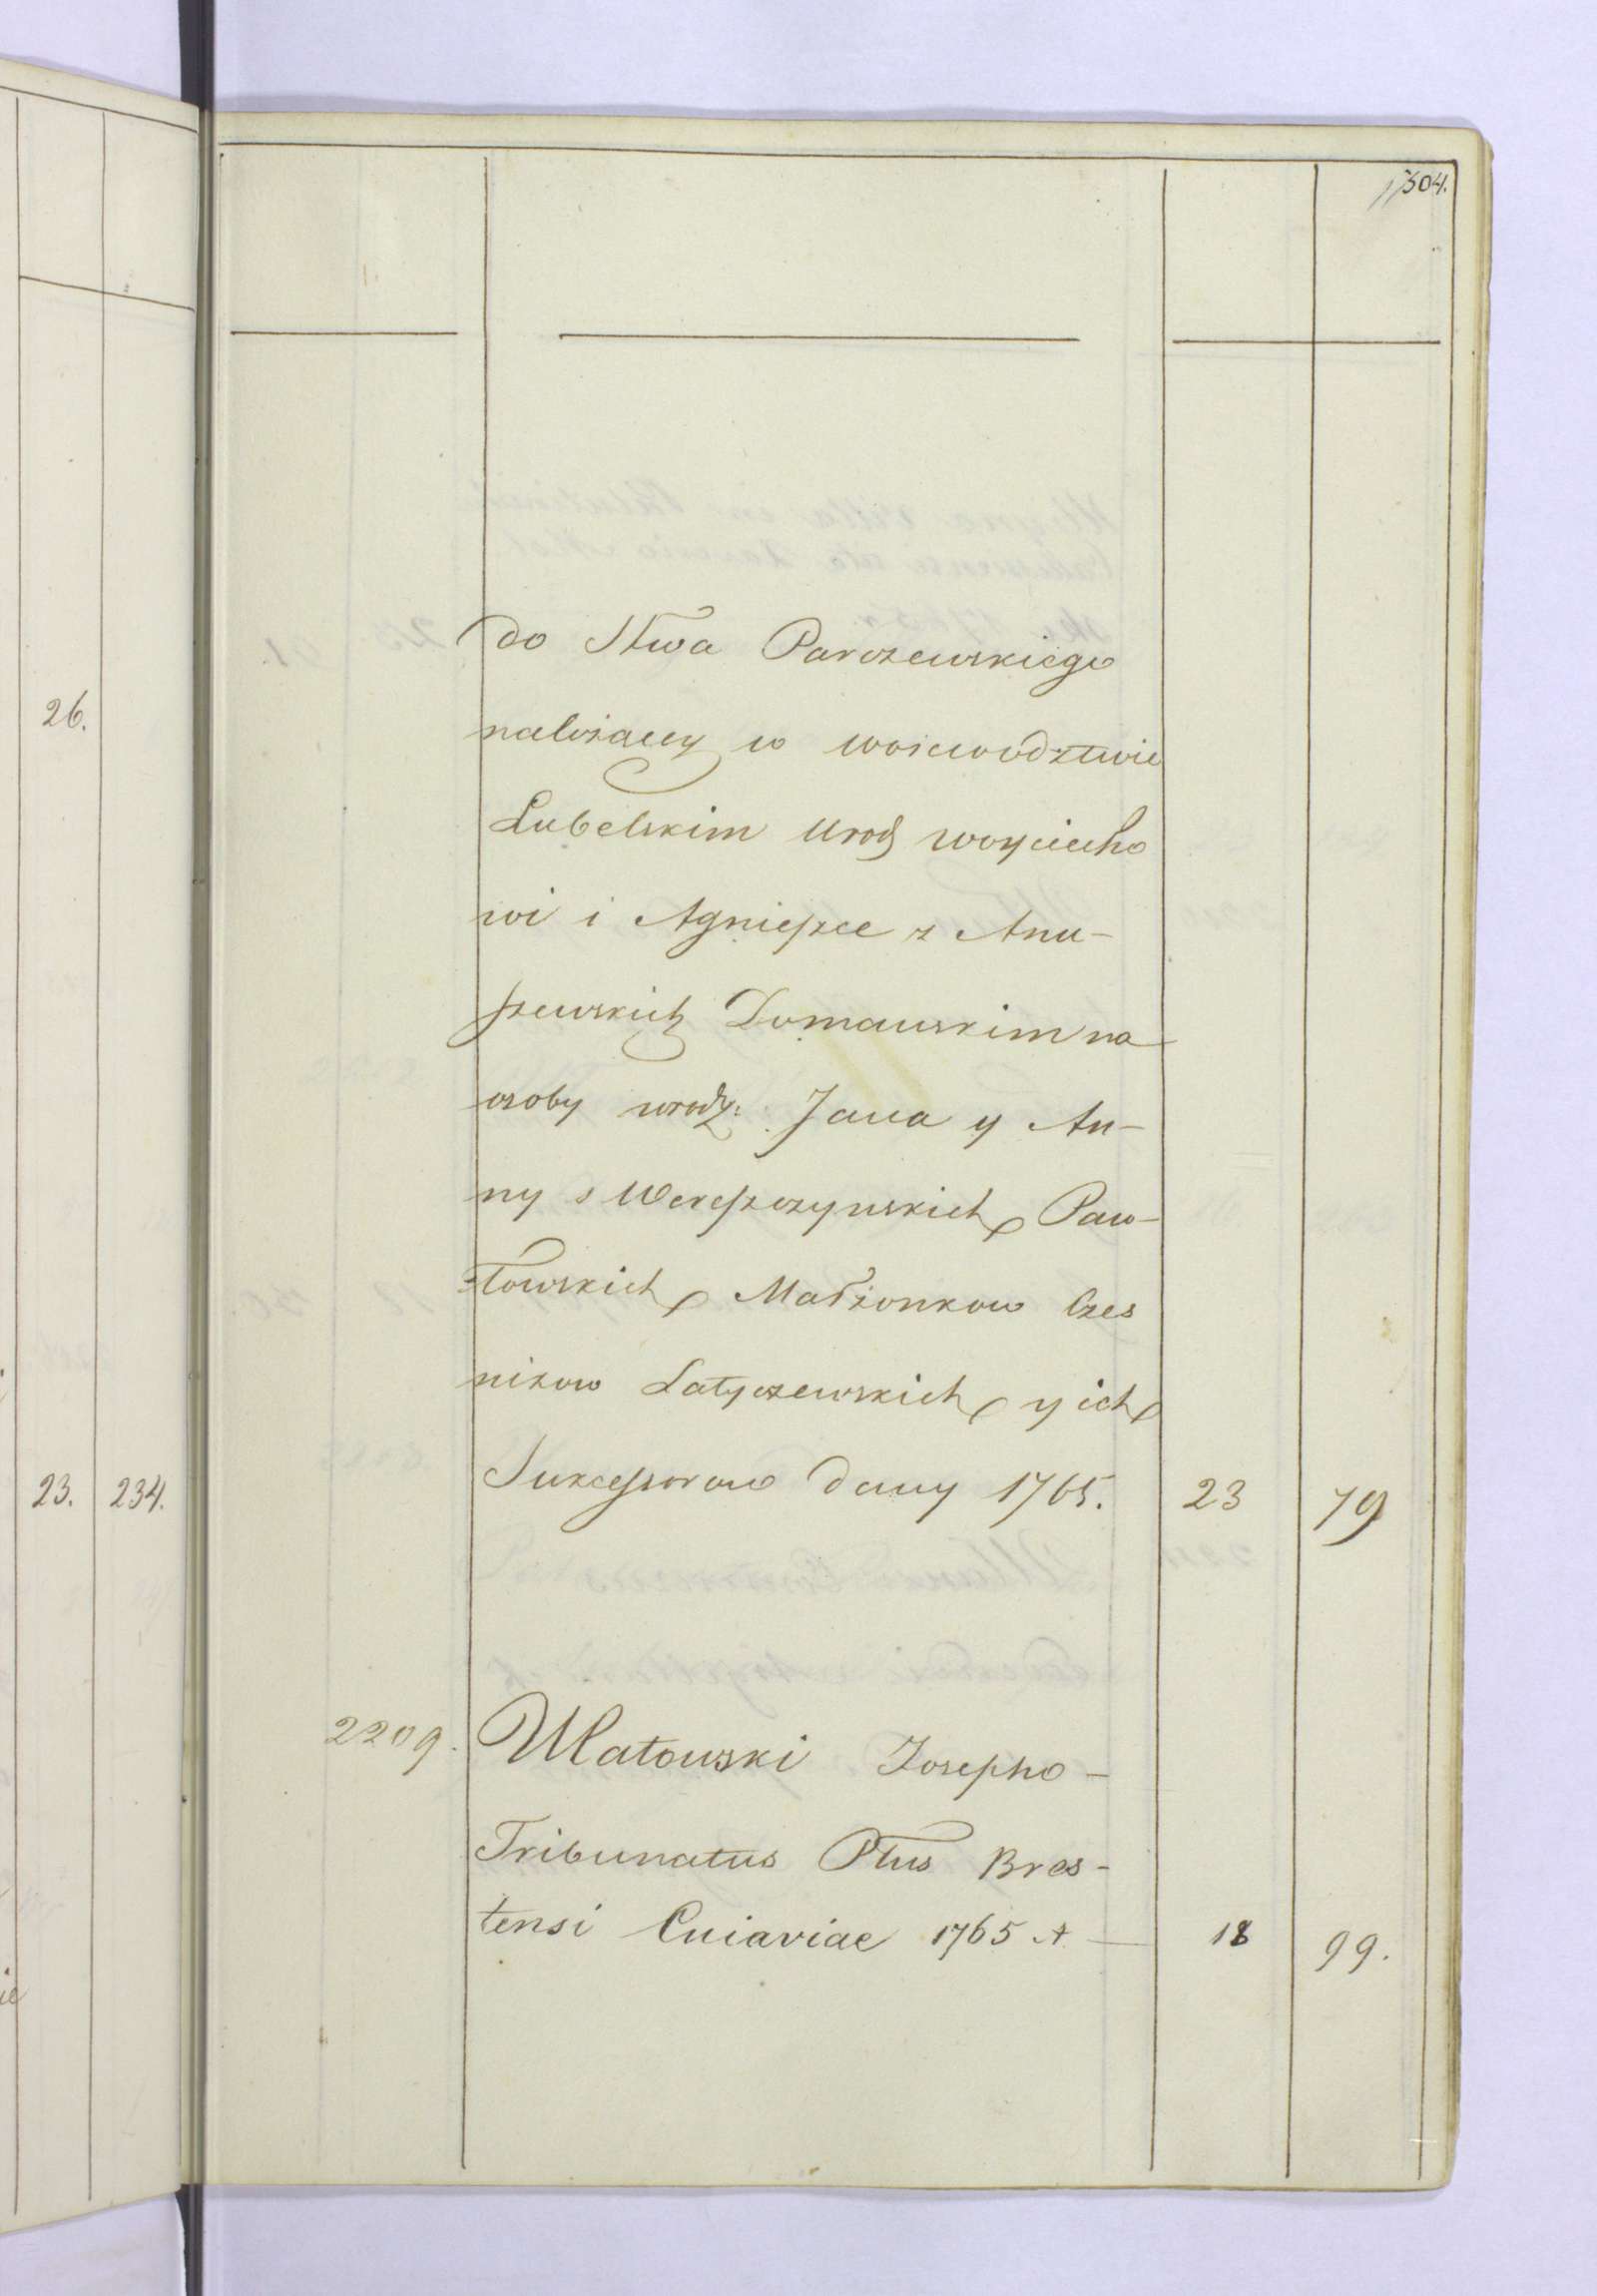 504.
do Stwa Parczewskiego
należący w woiewodztwie
Lubelskim Urodz woyciecho
wi i Agnieszce z Anu-
szewskich Domanskim na
osoby urodz: Jana y An-
ny s Wereszczynskich Paw-
łowskich Małżonkow Czes
nikow Latyczewskich y ich
Sukcessorow dany 1765. 23 79
2209. Ulatowski Josepho -
Tribunatus Pltus Bres-
tensi Cuiaviae 1765 A — 18 99.
26.
23. 234.